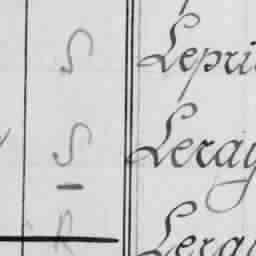 S Lepri
S Leray
R Lera